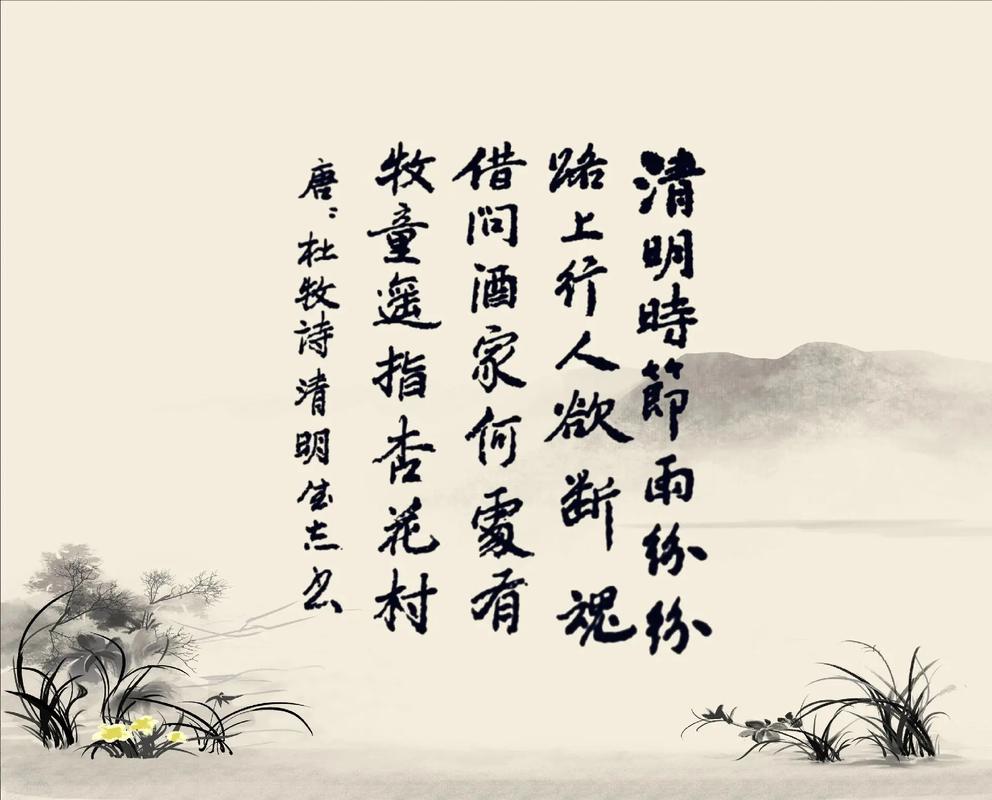 清明時節雨紛紛
路上行人欲斷魂
借問酒家何處有
牧童遥指杏花村
唐：杜牧詩清明 志忠